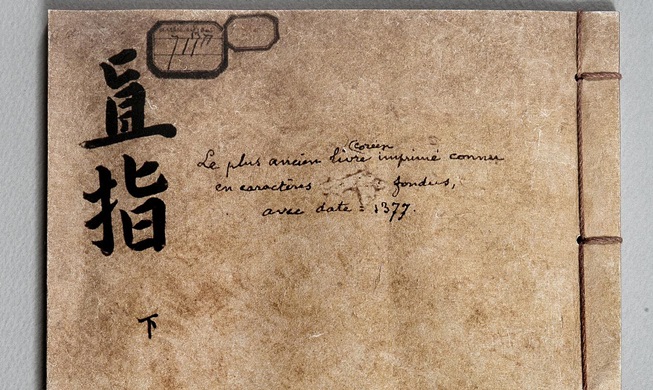 直指
下
7177
Coréen
Le plus ancien livre imprimé connu
en caractères fondus,
avec date = 1377.